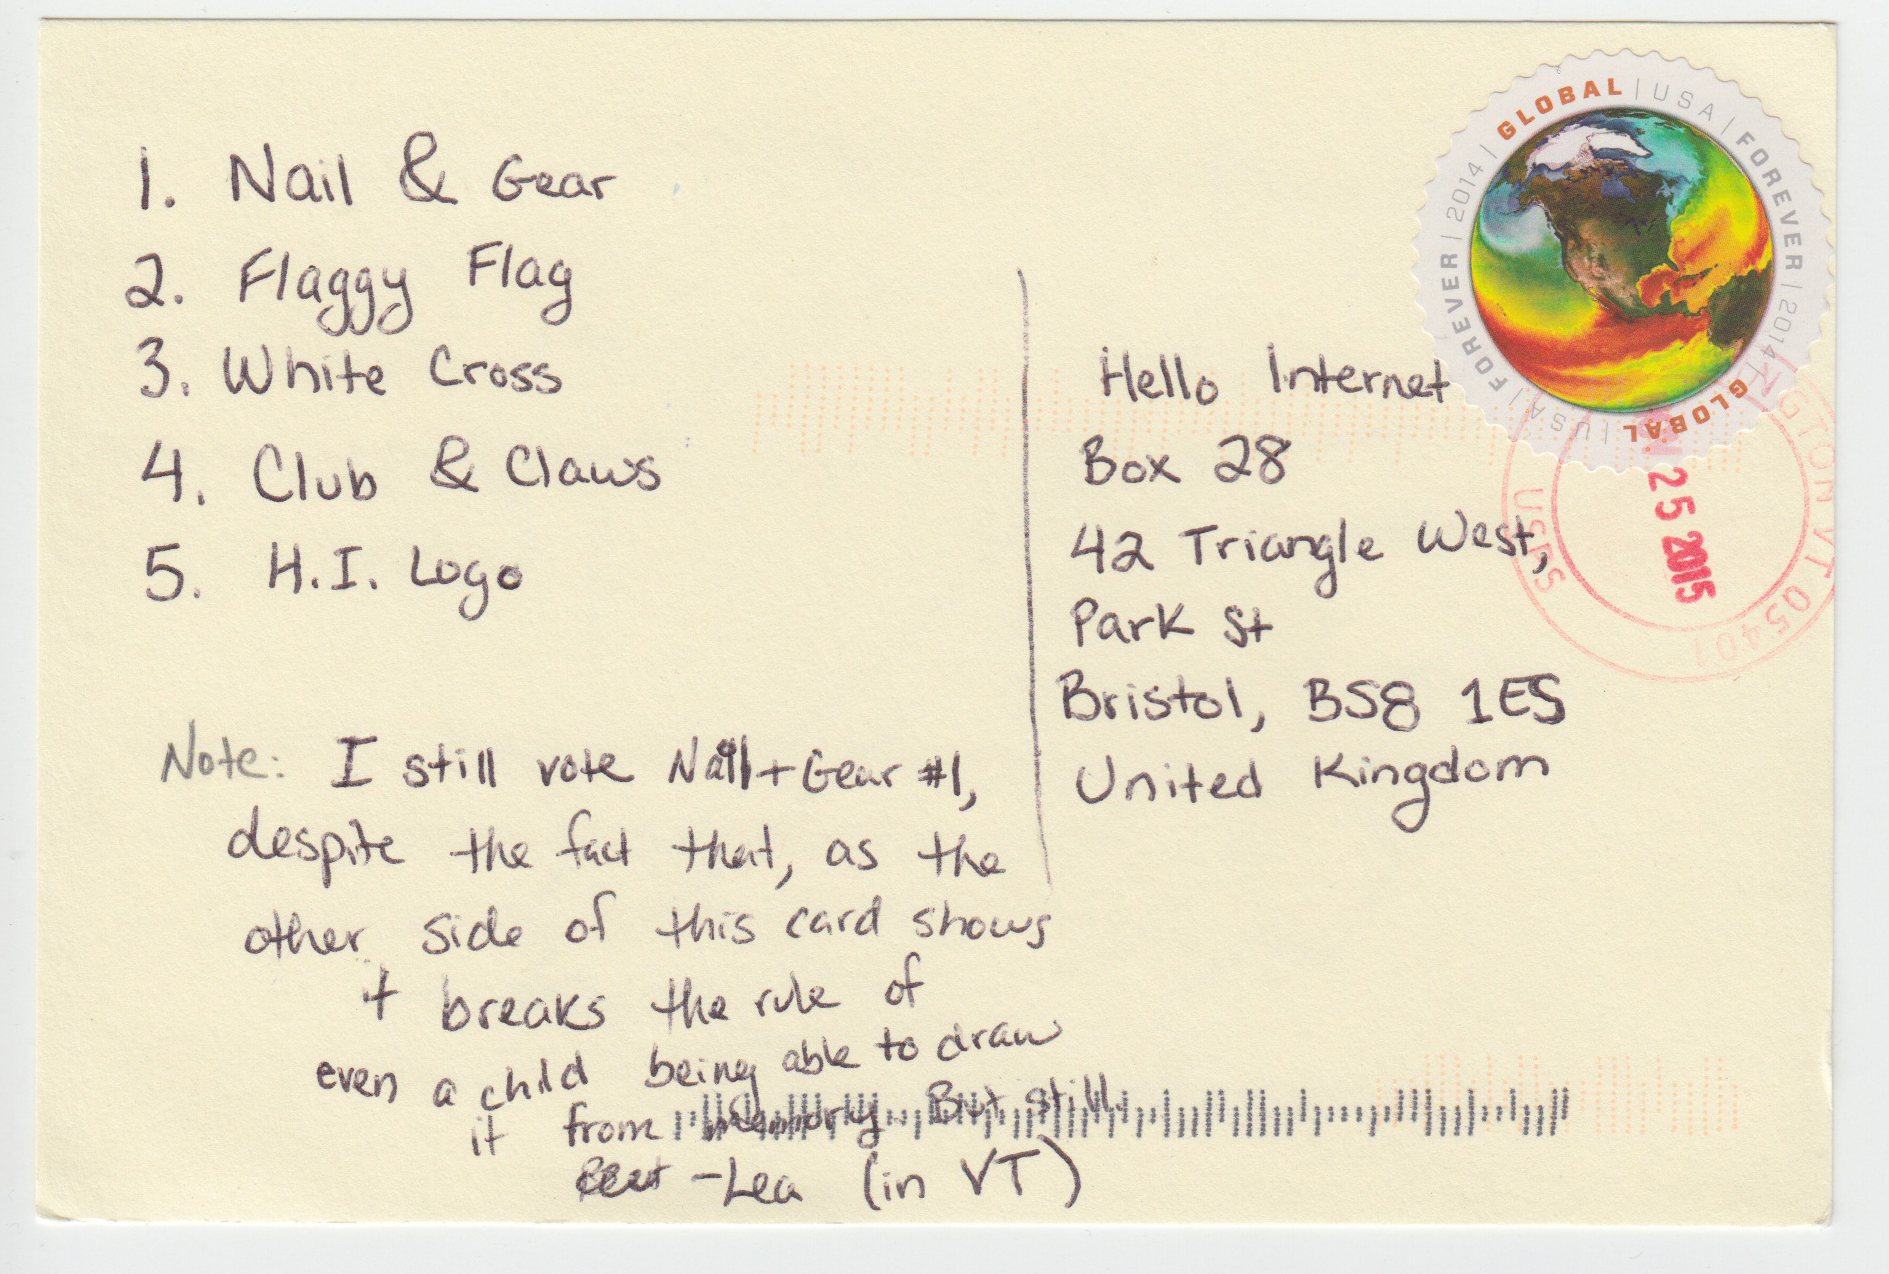 1. Nail & Gear
2. Flaggy Flag
3. White Cross
4. Club & Claws
5. H.I. Logo
Note: I still vote Nail + Gear #1,
despite the fact that, as the
other side of this card shows
+ breaks the rule of
even a child being able to draw
it from memory. But still.
Best -Lea (in VT)
Hello Internet
Box 28
42 Triangle West,
Park St
Bristol, BS8 1ES
United Kingdom
GLOBAL | USA | FOREVER | 2014 | GLOBAL | USA | FOREVER | 2014 |
NGTON VT 05401
25 2015
USPS